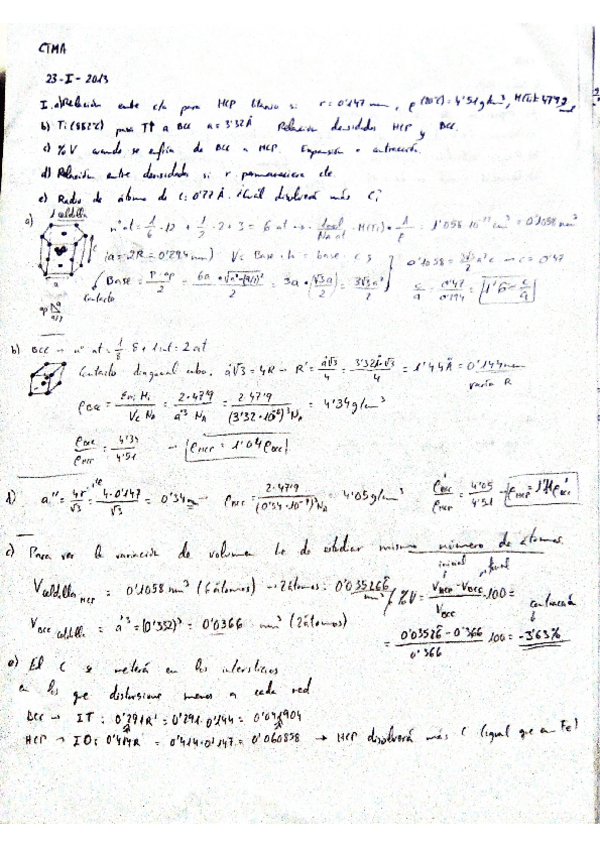 CTMA
23-I-2013
I. a) Relación entre c/a para HCP blanco si r = 0'147 nm, ρ(20ºC) = 4'51 g/cm³, M(Ti) = 47'9 g/mol
b) Ti (882ºC) pasa Tª a BCC a = 3'32 Å Relación densidades HCP y BCC.
c) %V cuando se enfría de BCC a HCP. Expansión o contracción.
d) Relación entre densidades si r permaneciera cte
e) Radio de átomo de C: 0'77 Å. ¿Cuál disolverá más C?
a) 1 celdilla
nº at = 1/6 · 12 + 1/2 · 2 + 3 = 6 at
= 1'058 · 10 cm³ = 0'1058 nm³
(a = 2R = 0'294 nm) V = Base · h = base · c
Base = p · ap / 2 = 6a · √(a²-(a/2)²) / 2 = 3a (√3a / 2) = 3√3a² / 2
0'1058 = 3√3/2 a²c → c = 0'47
c/a = 0'47 / 0'294 = 1'6 = c/a
Contacto
b) BCC → nº at = 1/8 · 8 + 1 int = 2 at
Contacto diagonal cubo. a'√3 = 4R → R' = a'√3 / 4 = 3'32·√3 / 4 = 1'44 Å = 0'144 nm
varía R
ρBCC = / Vc NA = 2·47'9 / a'³ NA = 2·47'9 / (3'32·10⁻⁸)³ NA = 4'34 g/cm³
ρBCC / ρHCP = 4'34 / 4'51 → ρHCP = 1'04 ρBCC
d) a'' = 4r / √3 = 4·0'147 / √3 = 0'34 → ρBCC = 2·47'9 / (0'34·10⁻⁸)³ NA = 4'05 g/cm³ ρ'BCC / ρHCP = 4'05 / 4'51 → ρHCP = 1'11 ρ'BCC
c) Para ver la variación de volumen he de estudiar mismo número de átomos.
inicial final
Vceldilla HCP = 0'1058 nm³ (6 átomos) → 2 átomos: 0'035266 nm³
%V = VHCP - VBCC / VBCC · 100 =
contracción
VBCC celdilla = a'³ = (0'332)³ = 0'0366 nm³ (2 átomos)
= 0'03526 - 0'366 / 0'366 · 100 = -3'63%
e) El C se meterá en los intersticios
en los que distorsione menos a cada red
BCC → IT: 0'291R' = 0'291·0'144 = 0'041904
HCP → IO: 0'414R = 0'414·0'147 = 0'060858 → HCP disolverá más C (igual que en Fe)